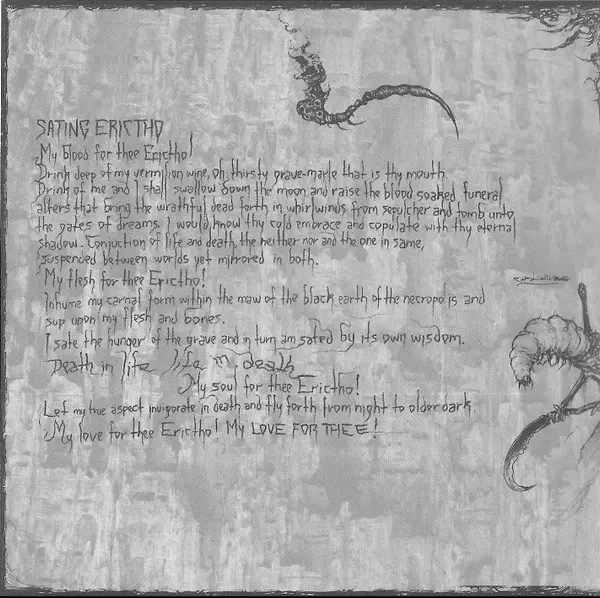 SATING ERICTHO
My blood for thee Erictho!
Drink deep of my vermilion wine, oh, thirsty grave-marle that is thy mouth
Drink of me and I shall swallow down the moon and raise the blood soaked funeral
alters that bring the wrathful dead forth in whirlwinds from sepulcher and tomb unto
the gates of dreams. I would know thy cold embrace and copulate with thy eternal
shadow. Conjuction of life and death, the neither nor and the one in same,
suspended between worlds yet mirrored in both.
My flesh for thee Erictho!
Inhume my carnal form within the maw of the black earth of the necropolis and
sup upon my flesh and bones.
I sate the hunger of the grave and in turn am sated by its own wisdom.
Death in life life in death
My soul for thee Erictho!
Let my true aspect invigorate in death and fly forth from night to older dark.
My love for thee Erictho! MY LOVE FOR THEE!